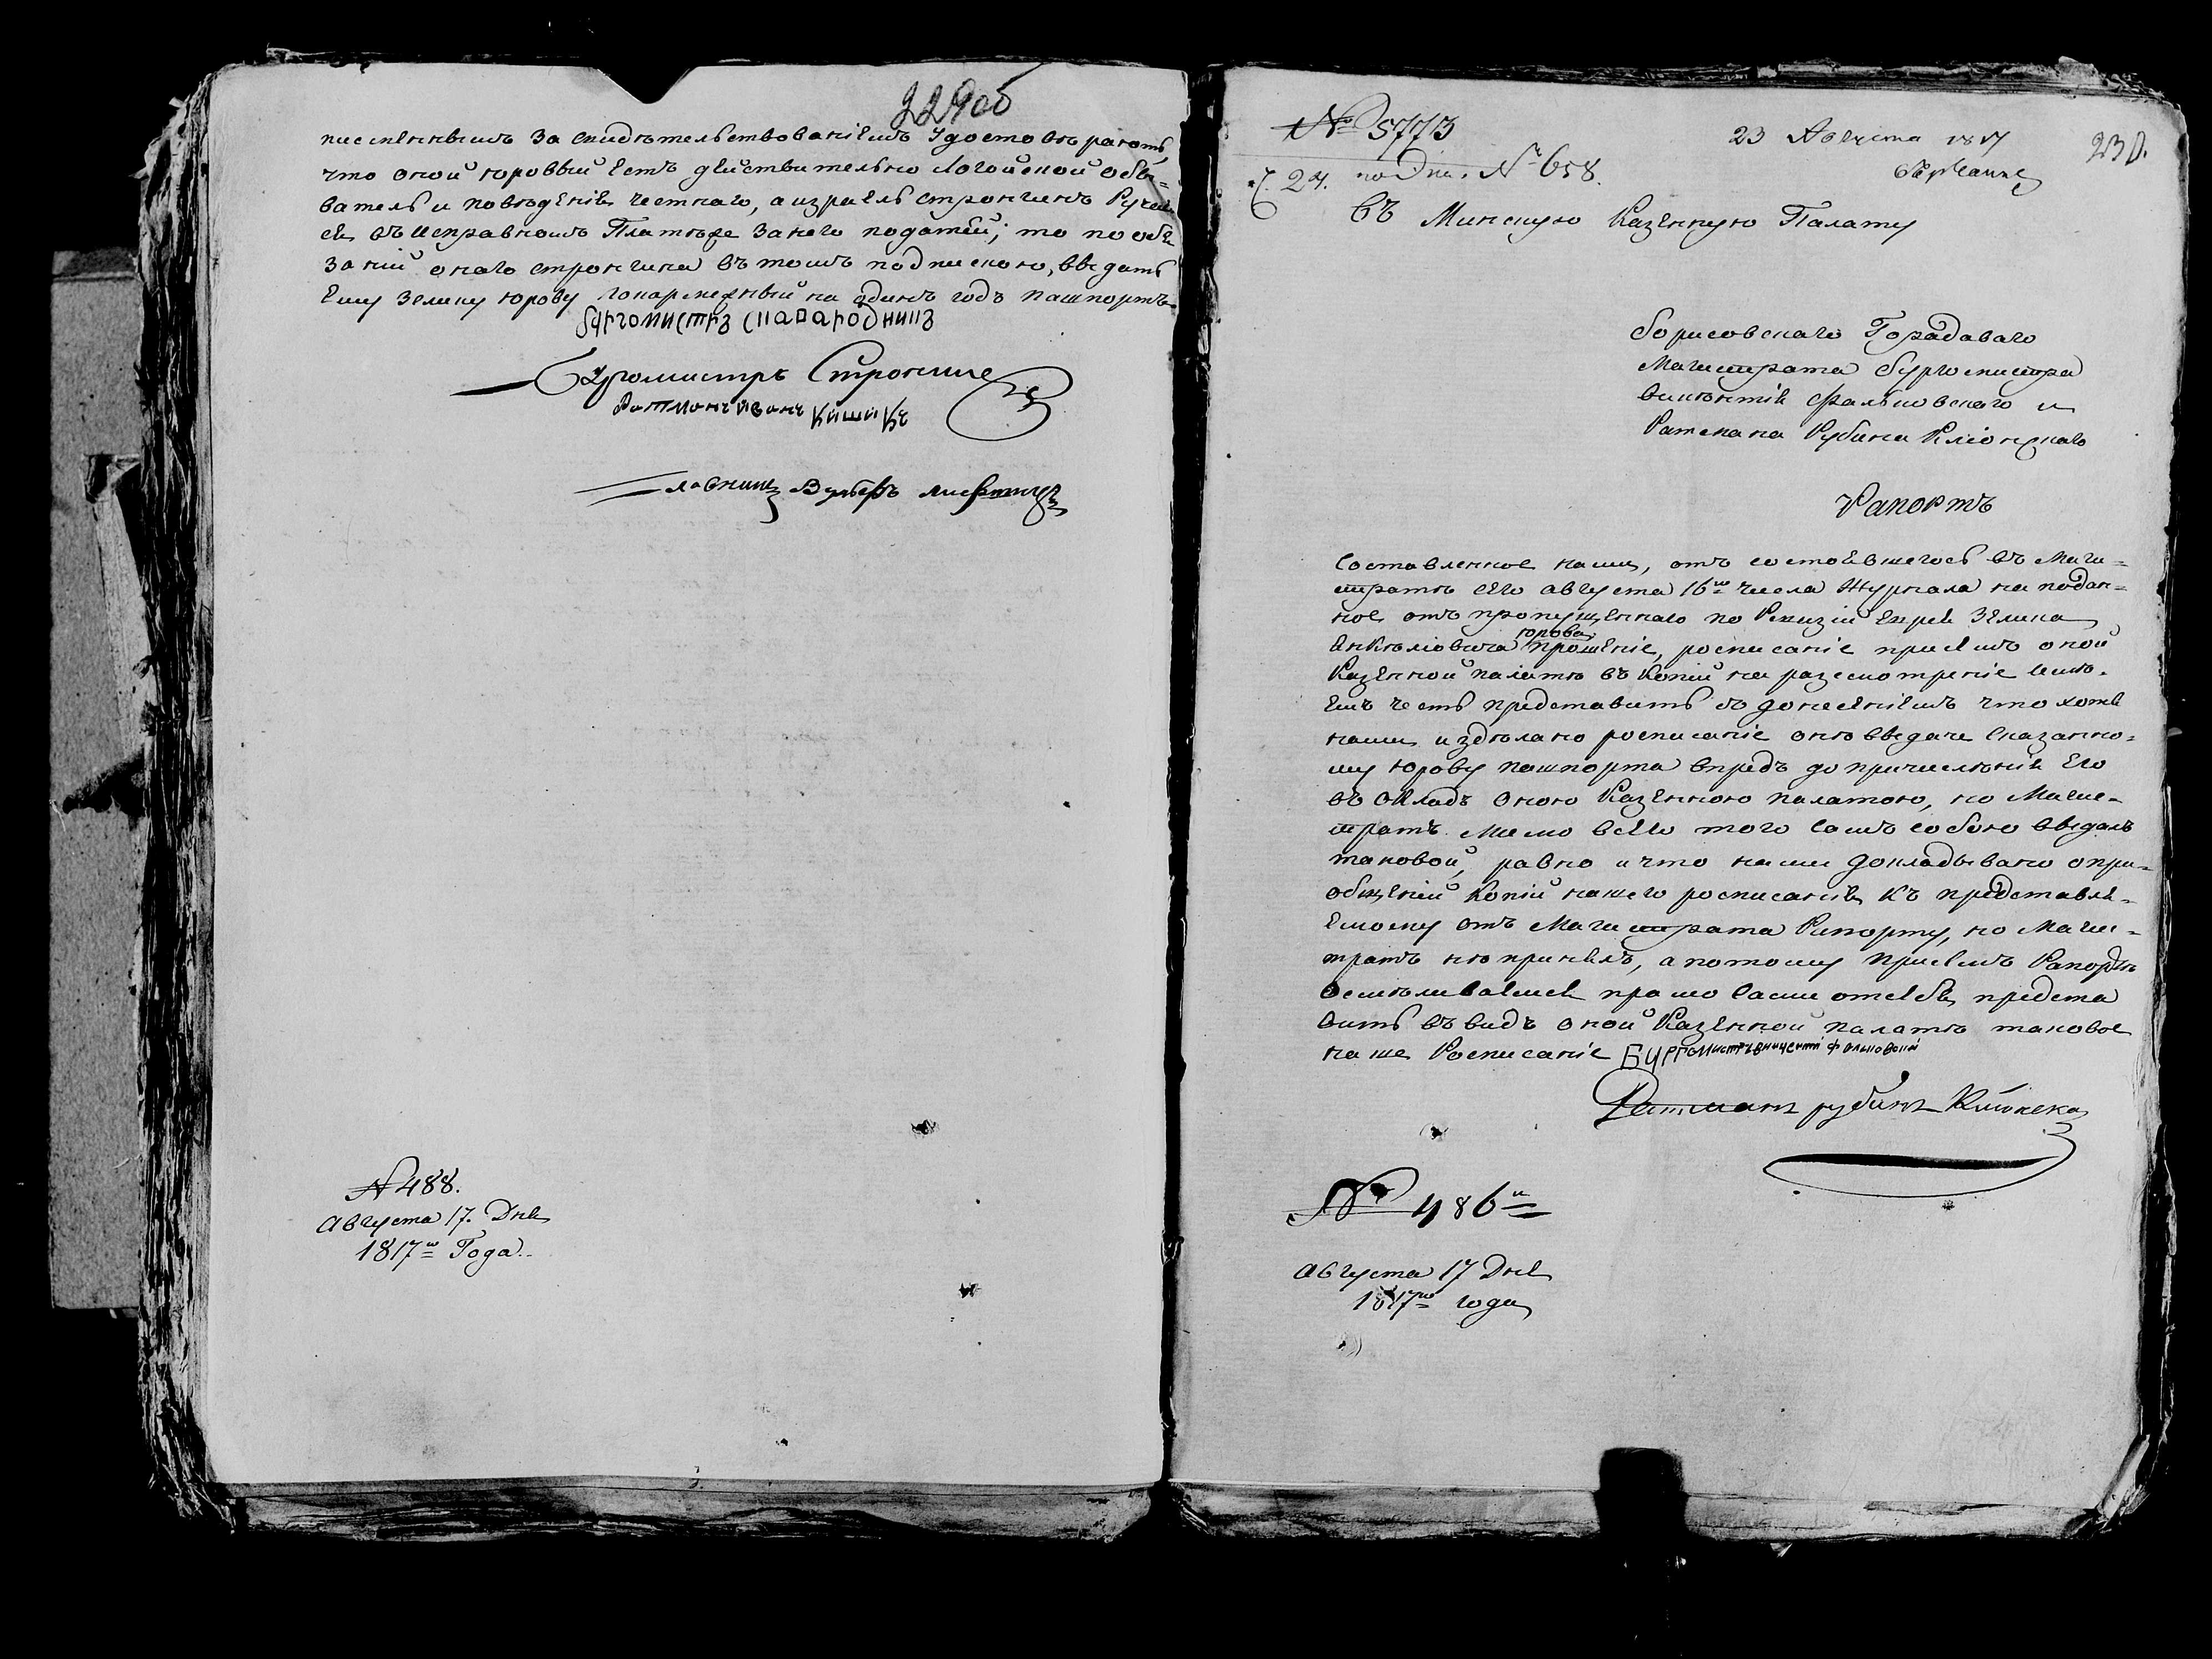 229об
писменнымъ засвидѣтельствованіемъ Удостовѣряютъ,
что оной Юровый Есть дѣйствительно Логойской обы-
ватель и поведенія честнаго, а израель Стронгинъ Ручает
ся въ исправномъ Платеже Занего податей; то по обя
заній онаго Стронгина въ томъ подпискою, выдать
Ему Зелику Юрову покармежный на одинъ годъ пашпортъ.
Бургомистръ
Бургомистръ Стронгин
Ратманъ иванъ Кишикъ
лавникъ Вульфъ
№ 488.
Августа 17. Дня
1817го Года.
№ 5773
23 Августа 1817
230.
Ч. 24. по Дни. № 658.
Въ Минскую Казенную Палату
борисовскаго Городоваго
Магистрата бургомистра
викентія Фальковскаго и
Ратмана Рубина Кліонскаго
Рапортъ
Составленное нами, отъ состоявшегось въ Маги-
стратѣ сего августа 16го числа Журнала на подан-
ное отъ пропущеннаго по Ревизіи Еврея Зелика
Юрова
прошеніе, росписаніе присемъ оной
Казенной палатѣ въ Копіи на разсмотреніе имѣ-
Емъ честь представить съ донесеніемъ что хотя
нами издѣлано росписаніе о невыдаче сказанно-
му Юрову пашпорта впредь до причисленія Его
въ окладъ оною Казенною палатою, но Маги-
стратъ мимо всего того самъ собою выдалъ
таковой, равно и что нами докладывано о при-
общеніи Копіи нашего росписанія къ представля-
Емому отъ Магистрата Рапорту, но Маги-
стратъ непринялъ, а потому присемъ Рапортѣ
Осмѣливаемся прямо сами отсебя предста
вить въ видъ оной Казенной палатѣ таковое
наше Росписаніе Бургомистръ викценти Фальковский
Ратманъ рубинъ Клионска
№ 486й
Августа 17 Дня
1817го года